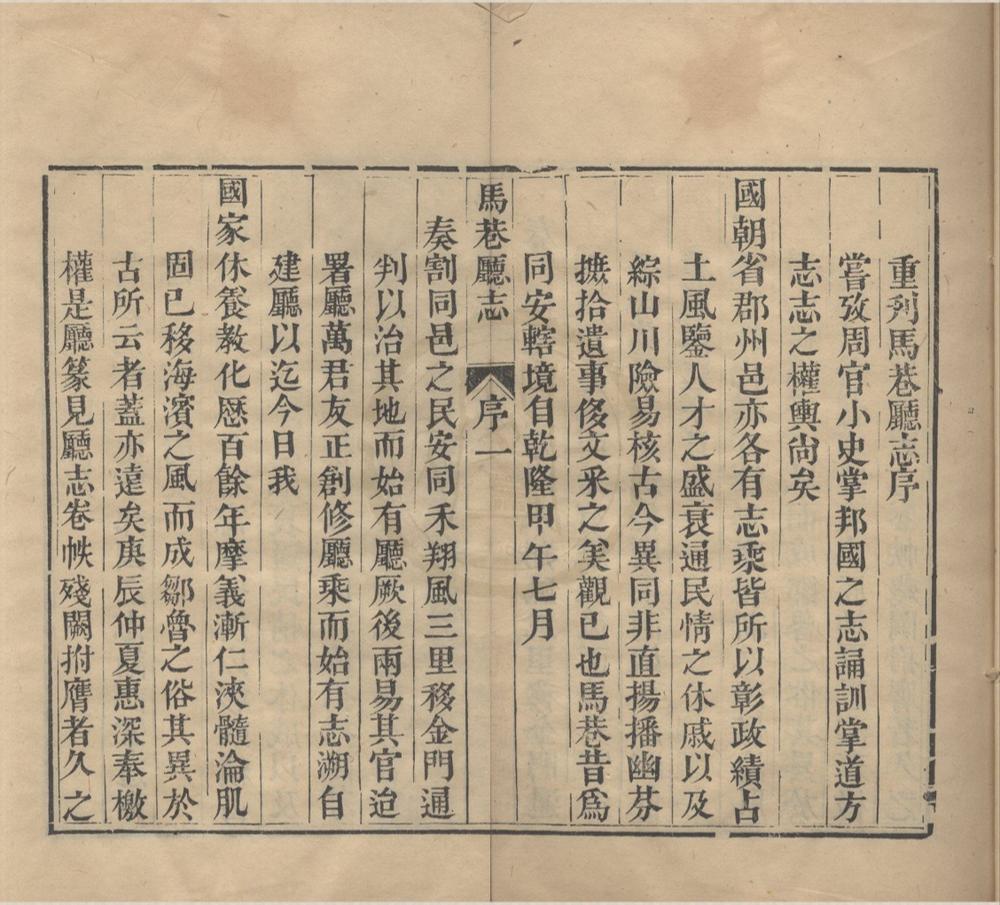 重刋馬巷廳志序
嘗攷周官小史掌邦國之志誦訓掌道方
志志之權輿尚矣
國朝省郡州邑亦各有志乘皆所以彰政績占
土風鑒人才之盛衰通民情之休戚以及
綜山川險易核古今異同非直揚播幽芬
摭拾遺事侈文采之美觀已也馬巷昔爲
同安轄境自乾隆甲午七月
馬巷廳志 序 一
奏割同邑之民安同禾翔風三里移金門通
判以治其地而始有廳厥後兩易其官迨
署廳萬君友正創修廳乘而始有志溯自
建廳以迄今日我
國家休養教化歷百餘年摩義漸仁浹髓淪肌
固已移海濱之風而成鄒魯之俗其異於
古所云者蓋亦遠矣庚辰仲夏惠深奉檄
權是廳篆見廳志卷帙殘闕拊膺者久之